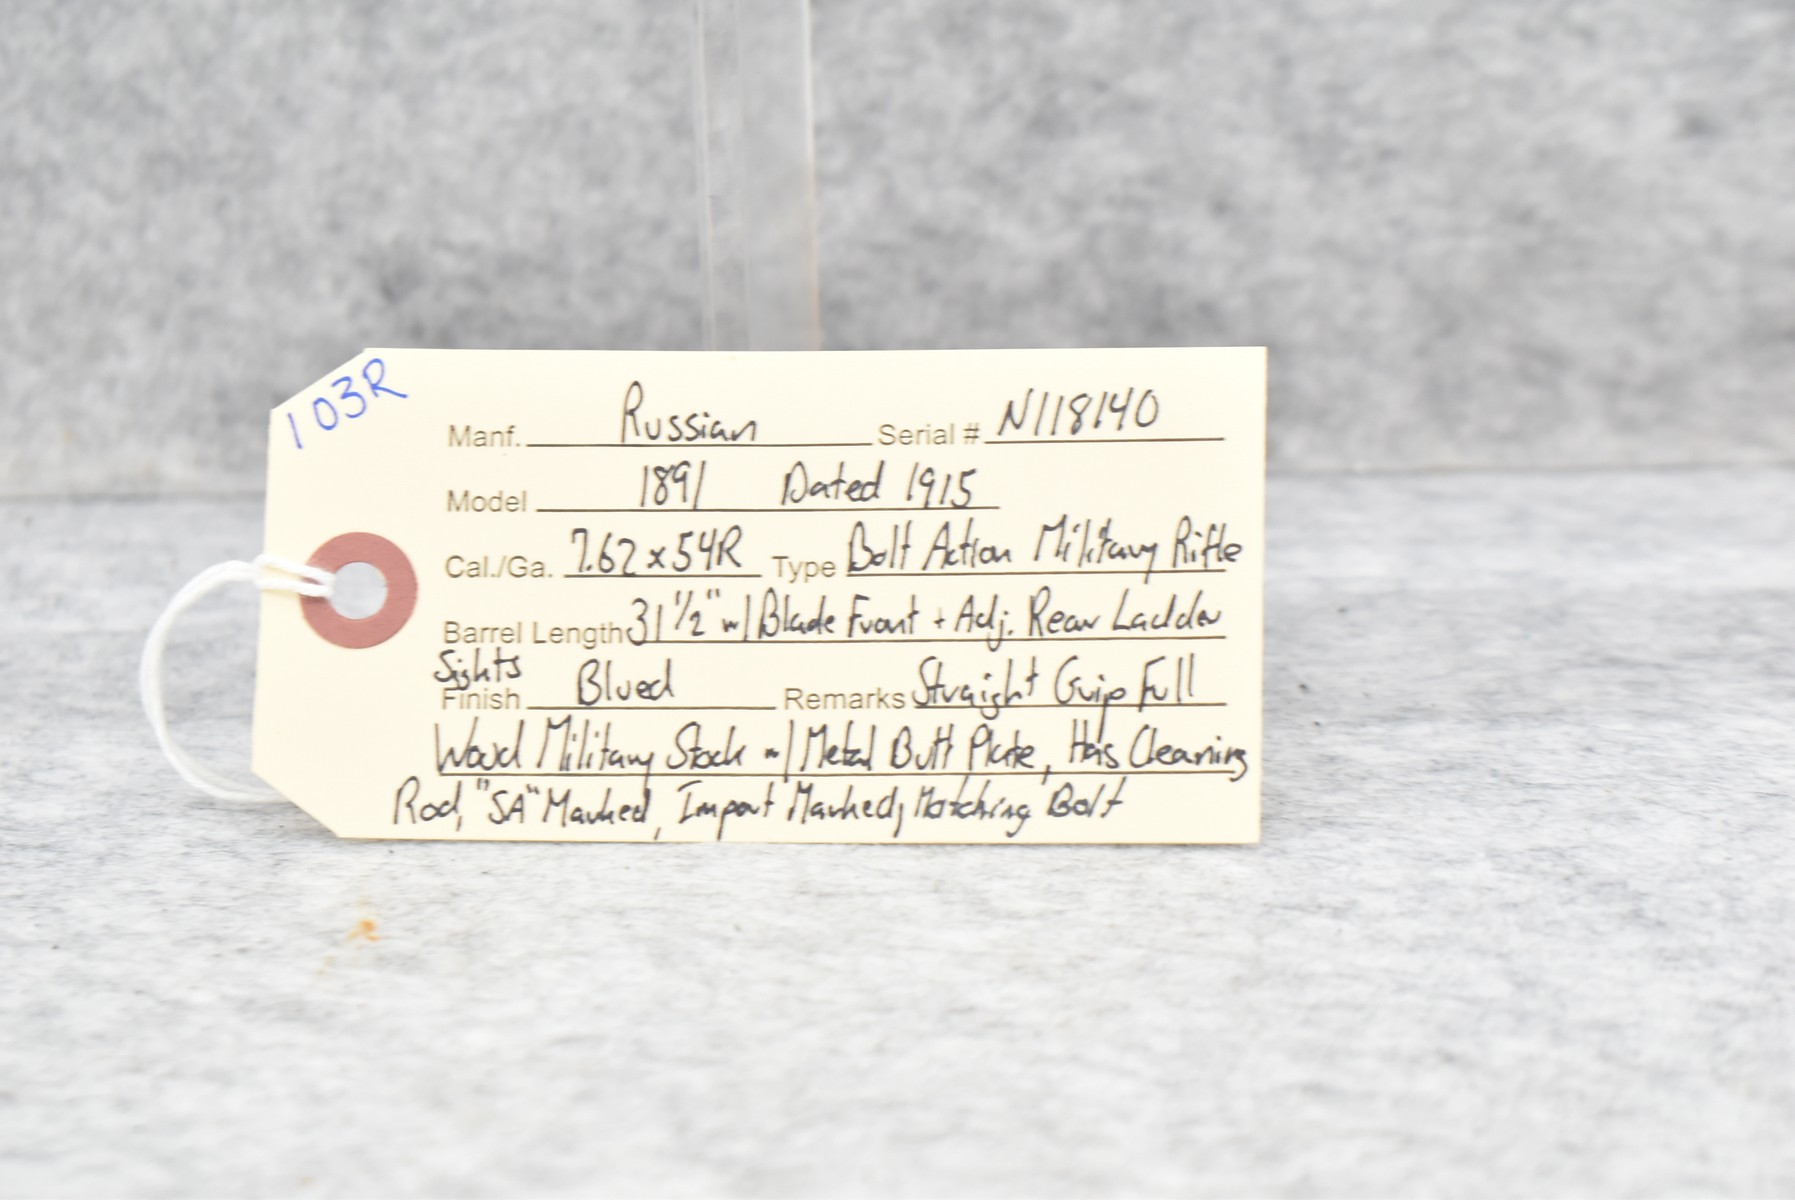 103R
Manf. Russian Serial # N118140
Model 1891 Dated 1915
Cal./Ga. 7.62x54R Type Bolt Action Military Rifle
Barrel Length 31 1/2" w/ Blade Front + Adj. Rear Ladder
Sights
Finish Blued Remarks Straight Grip Full
Wood Military Stock w/ Metal Butt Plate, Has Cleaning
Rod, "SA" Marked, Import Marked, Matching Bolt